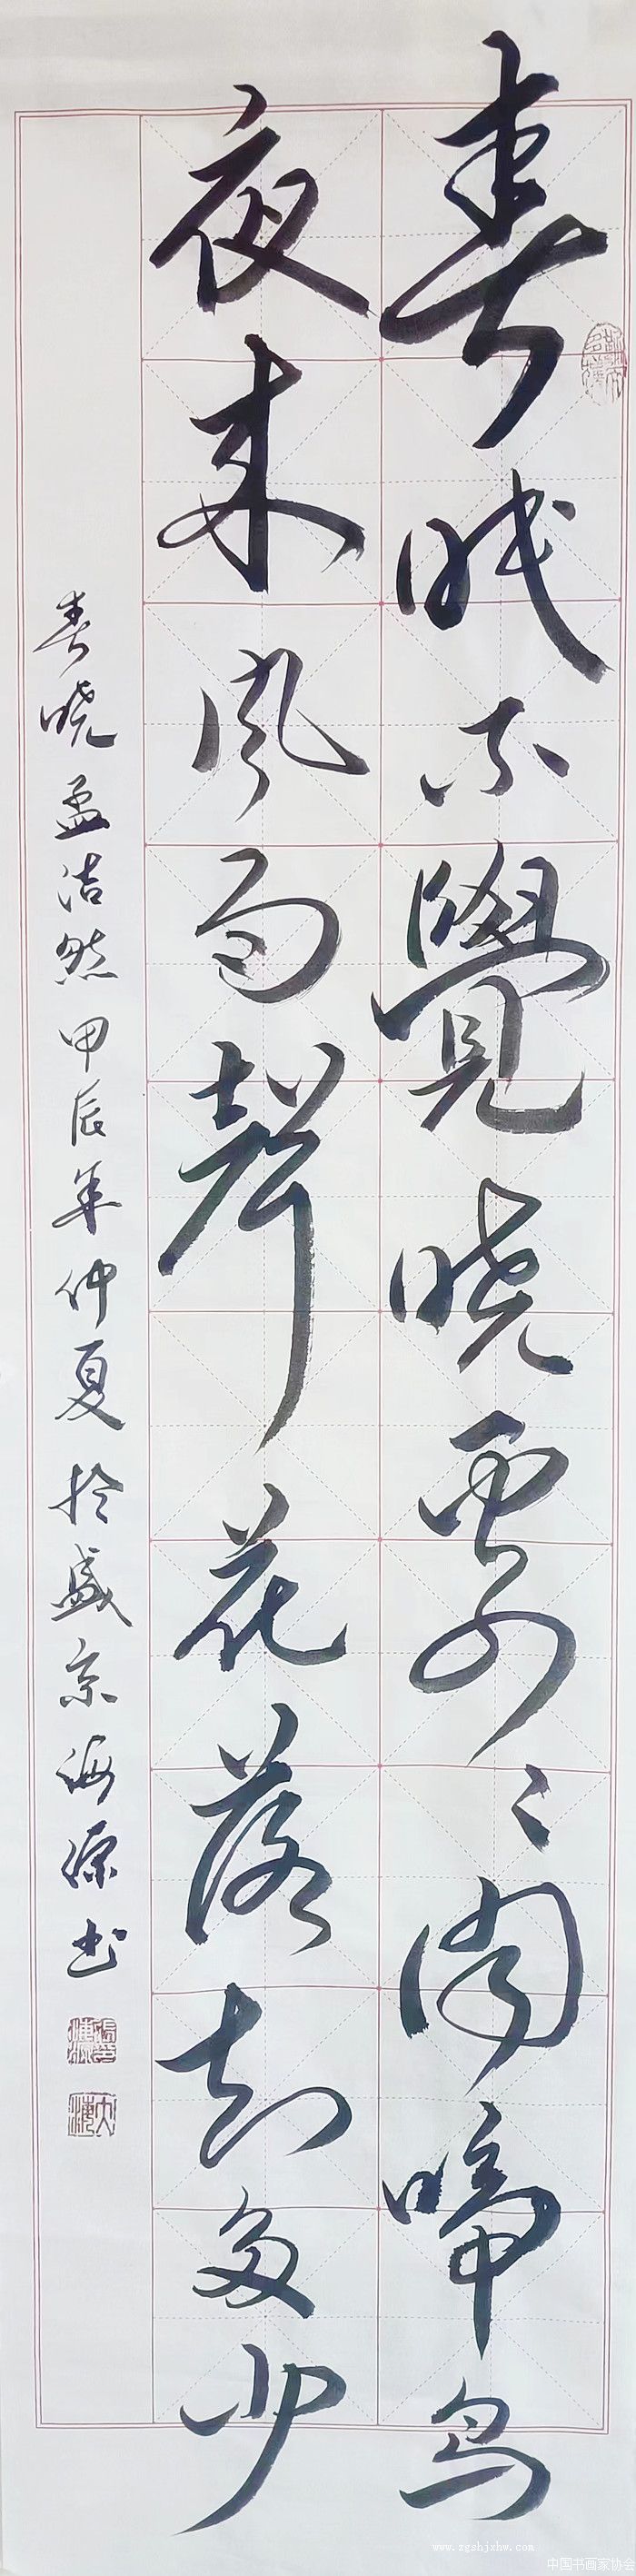 春眠不覺晓處々聞啼鳥
夜来風雨聲花落知多少
春晓 孟浩然 甲辰年仲夏於盛京海源书
www.zgshjxhw.com
中国书画家协会